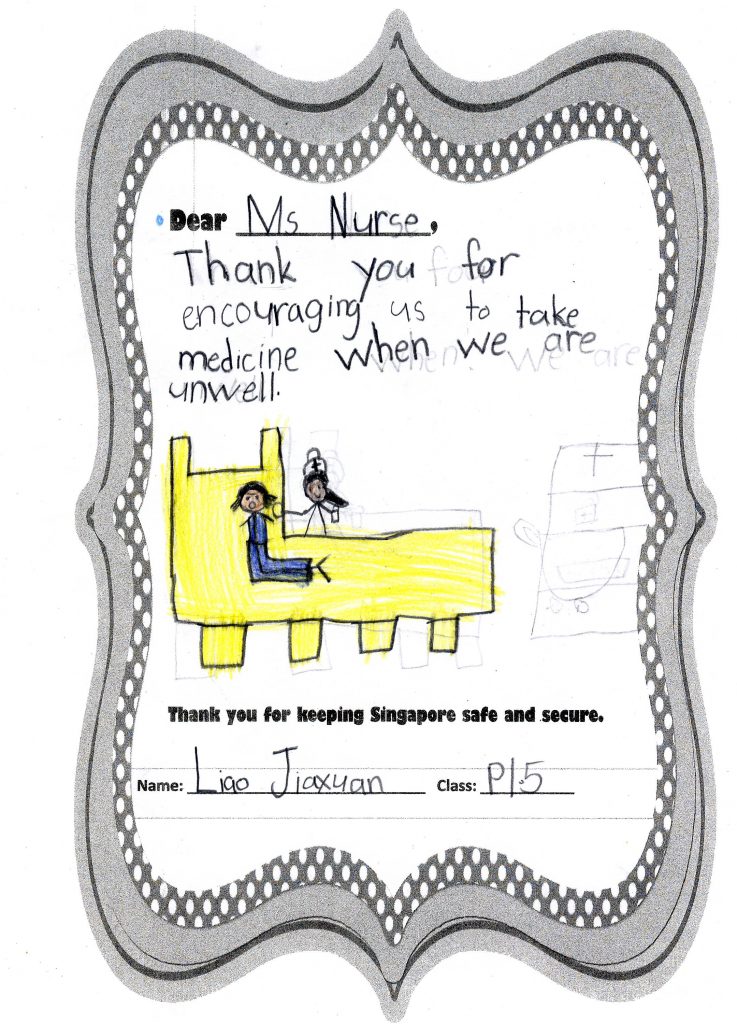 Dear Ms Nurse,
Thank you for
encouraging us to take
medicine when we are
unwell.
Thank you for keeping Singapore safe and secure.
Name: Liao Jiaxuan Class: P1.5